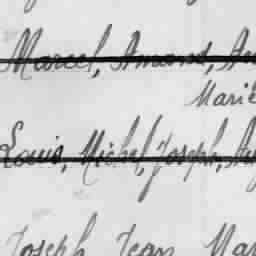 Marcel, Amand, Au
Marie
Louis, Michel, Joseph, Au
Joseph Jean Mar